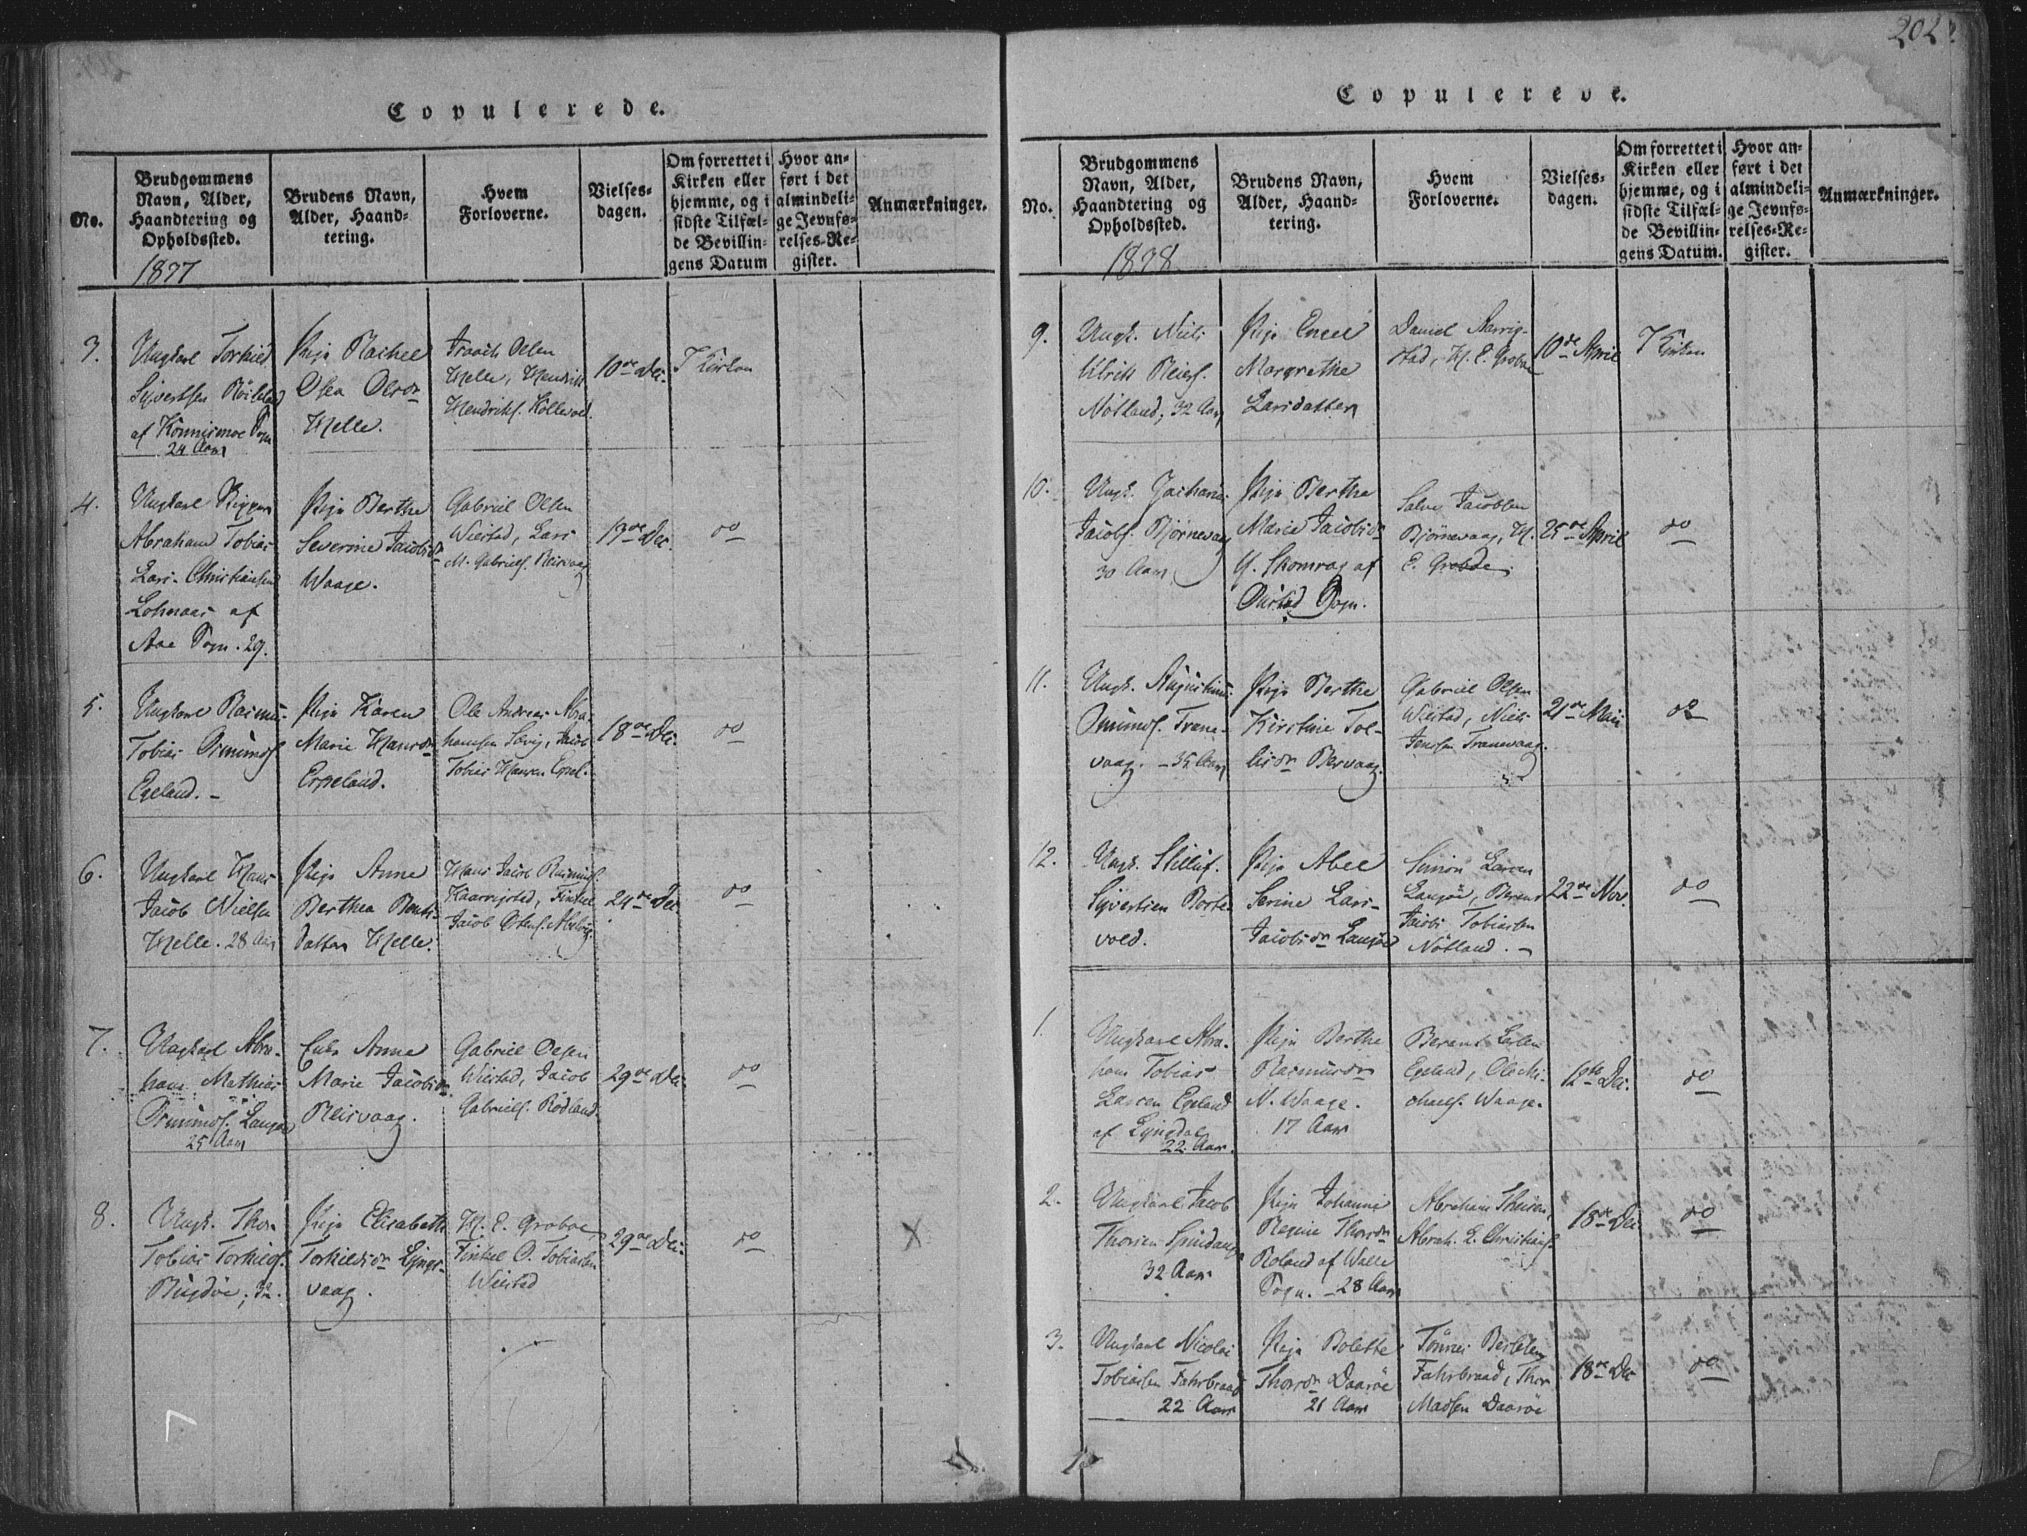 202
Copulerede.
No.
Brudgommens
Navn, Alder,
Haandtering og
Opholdssted.
1837
Brudens Navn,
Alder, Haand-
tering.
Hvem
Forloverne.
Vielses-
dagen.
Om forrettet i
Kirken eller
hjemme, og i
sidste Tilfæl-
de Bevillin-
gens Datum
Hvor an-
ført i det
almindeli-
ge Jevnfø-
relses-Re-
gister.
Anmærkninger.
3.
Ungkarl Torkild
Sijvertsen
af Konnismoe Sogn
24 Aar
Pige Rachel
Olsdr
Helle.
Olsen
Helle, Hendrik
Hendriks.
10de Dec.
I Kirken
4.
Ungkarl
Abraham Tobias
Lars Christiansen
af
Aae Sogn. 29.
Pige Berthe
Severine Jacobsdr
Waage.
Gabriel Olsen
Wiestad, Lars
M. Gabriels. Reisvaag
17de Dec.
do
5.
Ungkarl Rasmus
Tobias Osmunds.
Egeland. -
Pige Karen
Marie Hansdr
Espeland.
Ole Andreas Abra-
hamsen, Jacob
Tobias Hansen Espel.
18de Dec.
do
6.
Ungkarl Hans
Jacob Nielsen
Helle. 28 Aar
Pige Anne
Berthea Bents
datter Helle.
Hans Jacob Rasmus.
Kaarrigstad, Tinkel
Jacob
24de Dec.
do
7.
Ungkarl Abra-
ham Mathias
Osmunds. Langøe
25 Aar
Enke Anne
Marie Jacobsdr
Reisvaag.
Gabriel Olsen
Wiestad, Jacob
Gabriels. Rødland
29de Dec.
do
8.
Ungk. Thor
Tobias Torkils.
Bugdøe, 32.
Pige Elisabeth
Torkildsdr Ljngs-
vaag.
H. E. Groboe
Tinkel O. Tobiassen
Wiestad
29de Dec.
do
X
Copulerede.
No.
Brudgommens
Navn, Alder,
Haandtering og
Opholdssted.
1838
Brudens Navn,
Alder, Haand-
tering.
Hvem
Forloverne.
Vielses-
dagen.
Om forrettet i
Kirken eller
hjemme, og i
sidste Tilfæl-
de Bevillin-
gens Datum.
Hvor an-
ført i det
almindeli-
ge Jevnfø-
relses-Re-
gister.
Anmærkninger.
9.
Ungk. Niels
Ulrik Reiers.
Nøtland, 32 Aar
Pige Engel
Margrethe
Larsdatter
Daniel Aarrig-
stad, H. E. Groboe
10de April
I Kirken
10.
Ungk. Zacharias
Jacobs. Bjørnevaag
30 Aar
Pige Berthe
Marie Jacobsdr
G. Skomrag af
Oustad Sogn.
Salve Jacobsen
Bjørnevaag, H.
E. Groboe.
25de April
do
11.
Ungk. Augustinus
Osmunds. Trane-
vaag. - 35 Aar
Pige Berthe
Kirstine Tol-
lisdr Bervaag.
Gabriel Olsen
Wiestad, Niels
Jensen Tranevaag.
21de Maii
do
12.
Ungk. Stilluf
Sijvertsen Borte-
vold.
Pige Abel
Serine Lars-
Jacobsdr Langøe
Simon Larsen
Langøe, Berent
Jacob Tobiassen
Nøtland. -
22de Nov.
do
1.
Ungkarl Abra-
ham Tobias
Larsen Egeland
af Lyngdal
22 Aar.
Pige Berthe
Rasmusdr
N. Waage.
17 Aar
Berent Larsen
Egeland, Ole Mi-
chaels. Waage.
12te Dec.
do
2.
Ungkarl Jacob
Thorsen Spindang
32 Aar
Pige Johanne
Regine Thorsdr
Roland af Walle
Sogn. - 28 Aar
Abraham Theisen,
Abrah. E. Christians.
18de Dec.
do
3.
Ungkarl Nicolai
Tobiassen Fahrbraad
22 Aar
Pige Bolette
Thorsdr Daarøe
21 Aar
Tønnes Berntsen
Fahrbraad, Thor
Madsen Daarøe
18de Dec
do